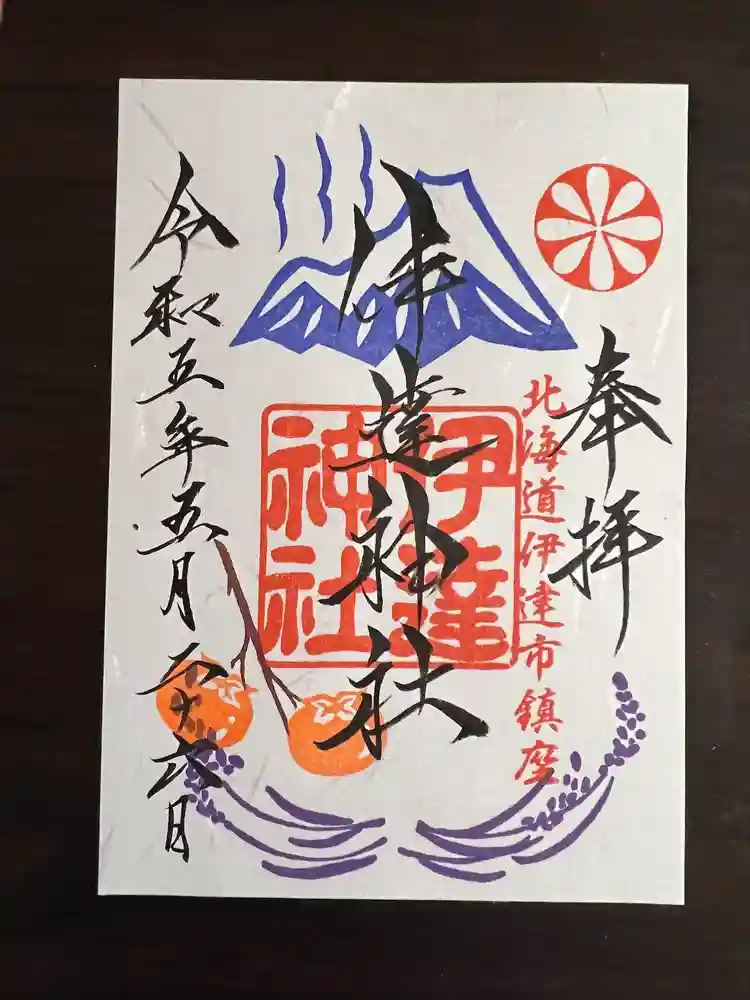 奉拝
北海道伊達市鎮座
伊達神社
伊達
神社
令和五年五月二十六日